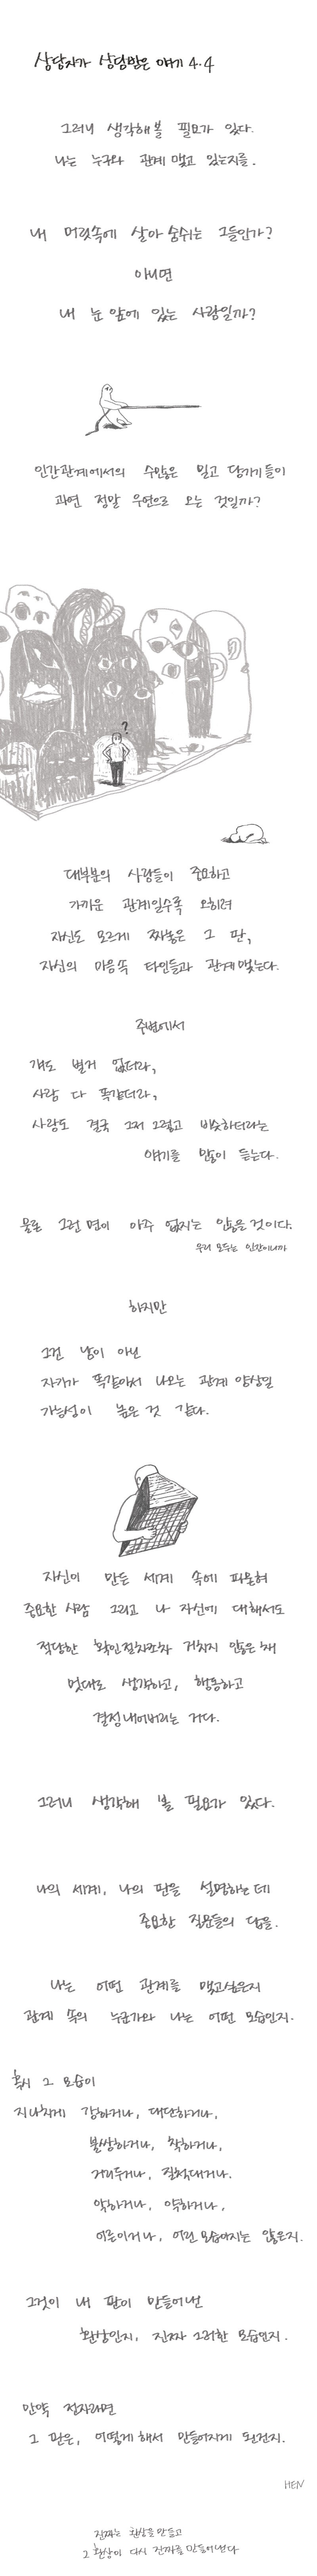 상담자가 상담받은 얘기 4.4
그러니 생각해 볼 필요가 있다.
나는 누구와 관계 맺고 있는지를.
내 머릿속에 살아 숨쉬는 그들인가?
아니면
내 눈 앞에 있는 사람일까?
인간관계에서의 수많은 밀고 당기기들이
과연 정말 우연으로 오는 것일까?
?
대부분의 사람들이 중요하고
가까운 관계일수록 오히려
자신도 모르게 짜놓은 그 판,
자신의 마음속 타인들과 관계 맺는다.
주변에서
걔도 별거 없더라,
사람 다 똑같더라,
사랑도 결국 그저 그렇고 비슷하더라는
얘기를 많이 듣는다.
물론 그런 면이 아주 없지는 않을 것이다.
우리 모두는 인간이니까
하지만
그건 남이 아닌
자기가 똑같아서 나오는 관계 양상일
가능성이 높은 것 같다.
자신이 만든 세계 속에 파묻혀
중요한 사람 그리고 나 자신에 대해서도
적당한 확인절차조차 거치지 않은 채
멋대로 생각하고, 행동하고
결정내어버리는 거다.
그러니 생각해 볼 필요가 있다.
나의 세계, 나의 판을 설명하는 데
중요한 질문들의 답을.
나는 어떤 관계를 맺고싶은지
관계 속의 누군가와 나는 어떤 모습인지.
혹시 그 모습이
지나치게 강하거나, 대단하거나,
불쌍하거나, 착하거나,
거리두거나, 질척대거나.
악하거나, 약하거나,
어른이거나, 어린 모습이지는 않은지.
그것이 내 판이 만들어낸
환상인지, 진짜 그러한 모습인지.
만약 전자라면
그 판은, 어떻게 해서 만들어지게 된건지.
HEN
진짜는 환상을 만들고
그 환상이 다시 진짜를 만들어 낸다